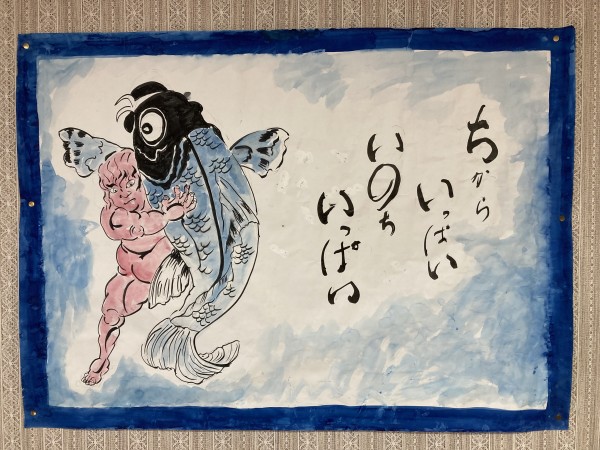 ちから
いっぱい
いのち
いっぱい